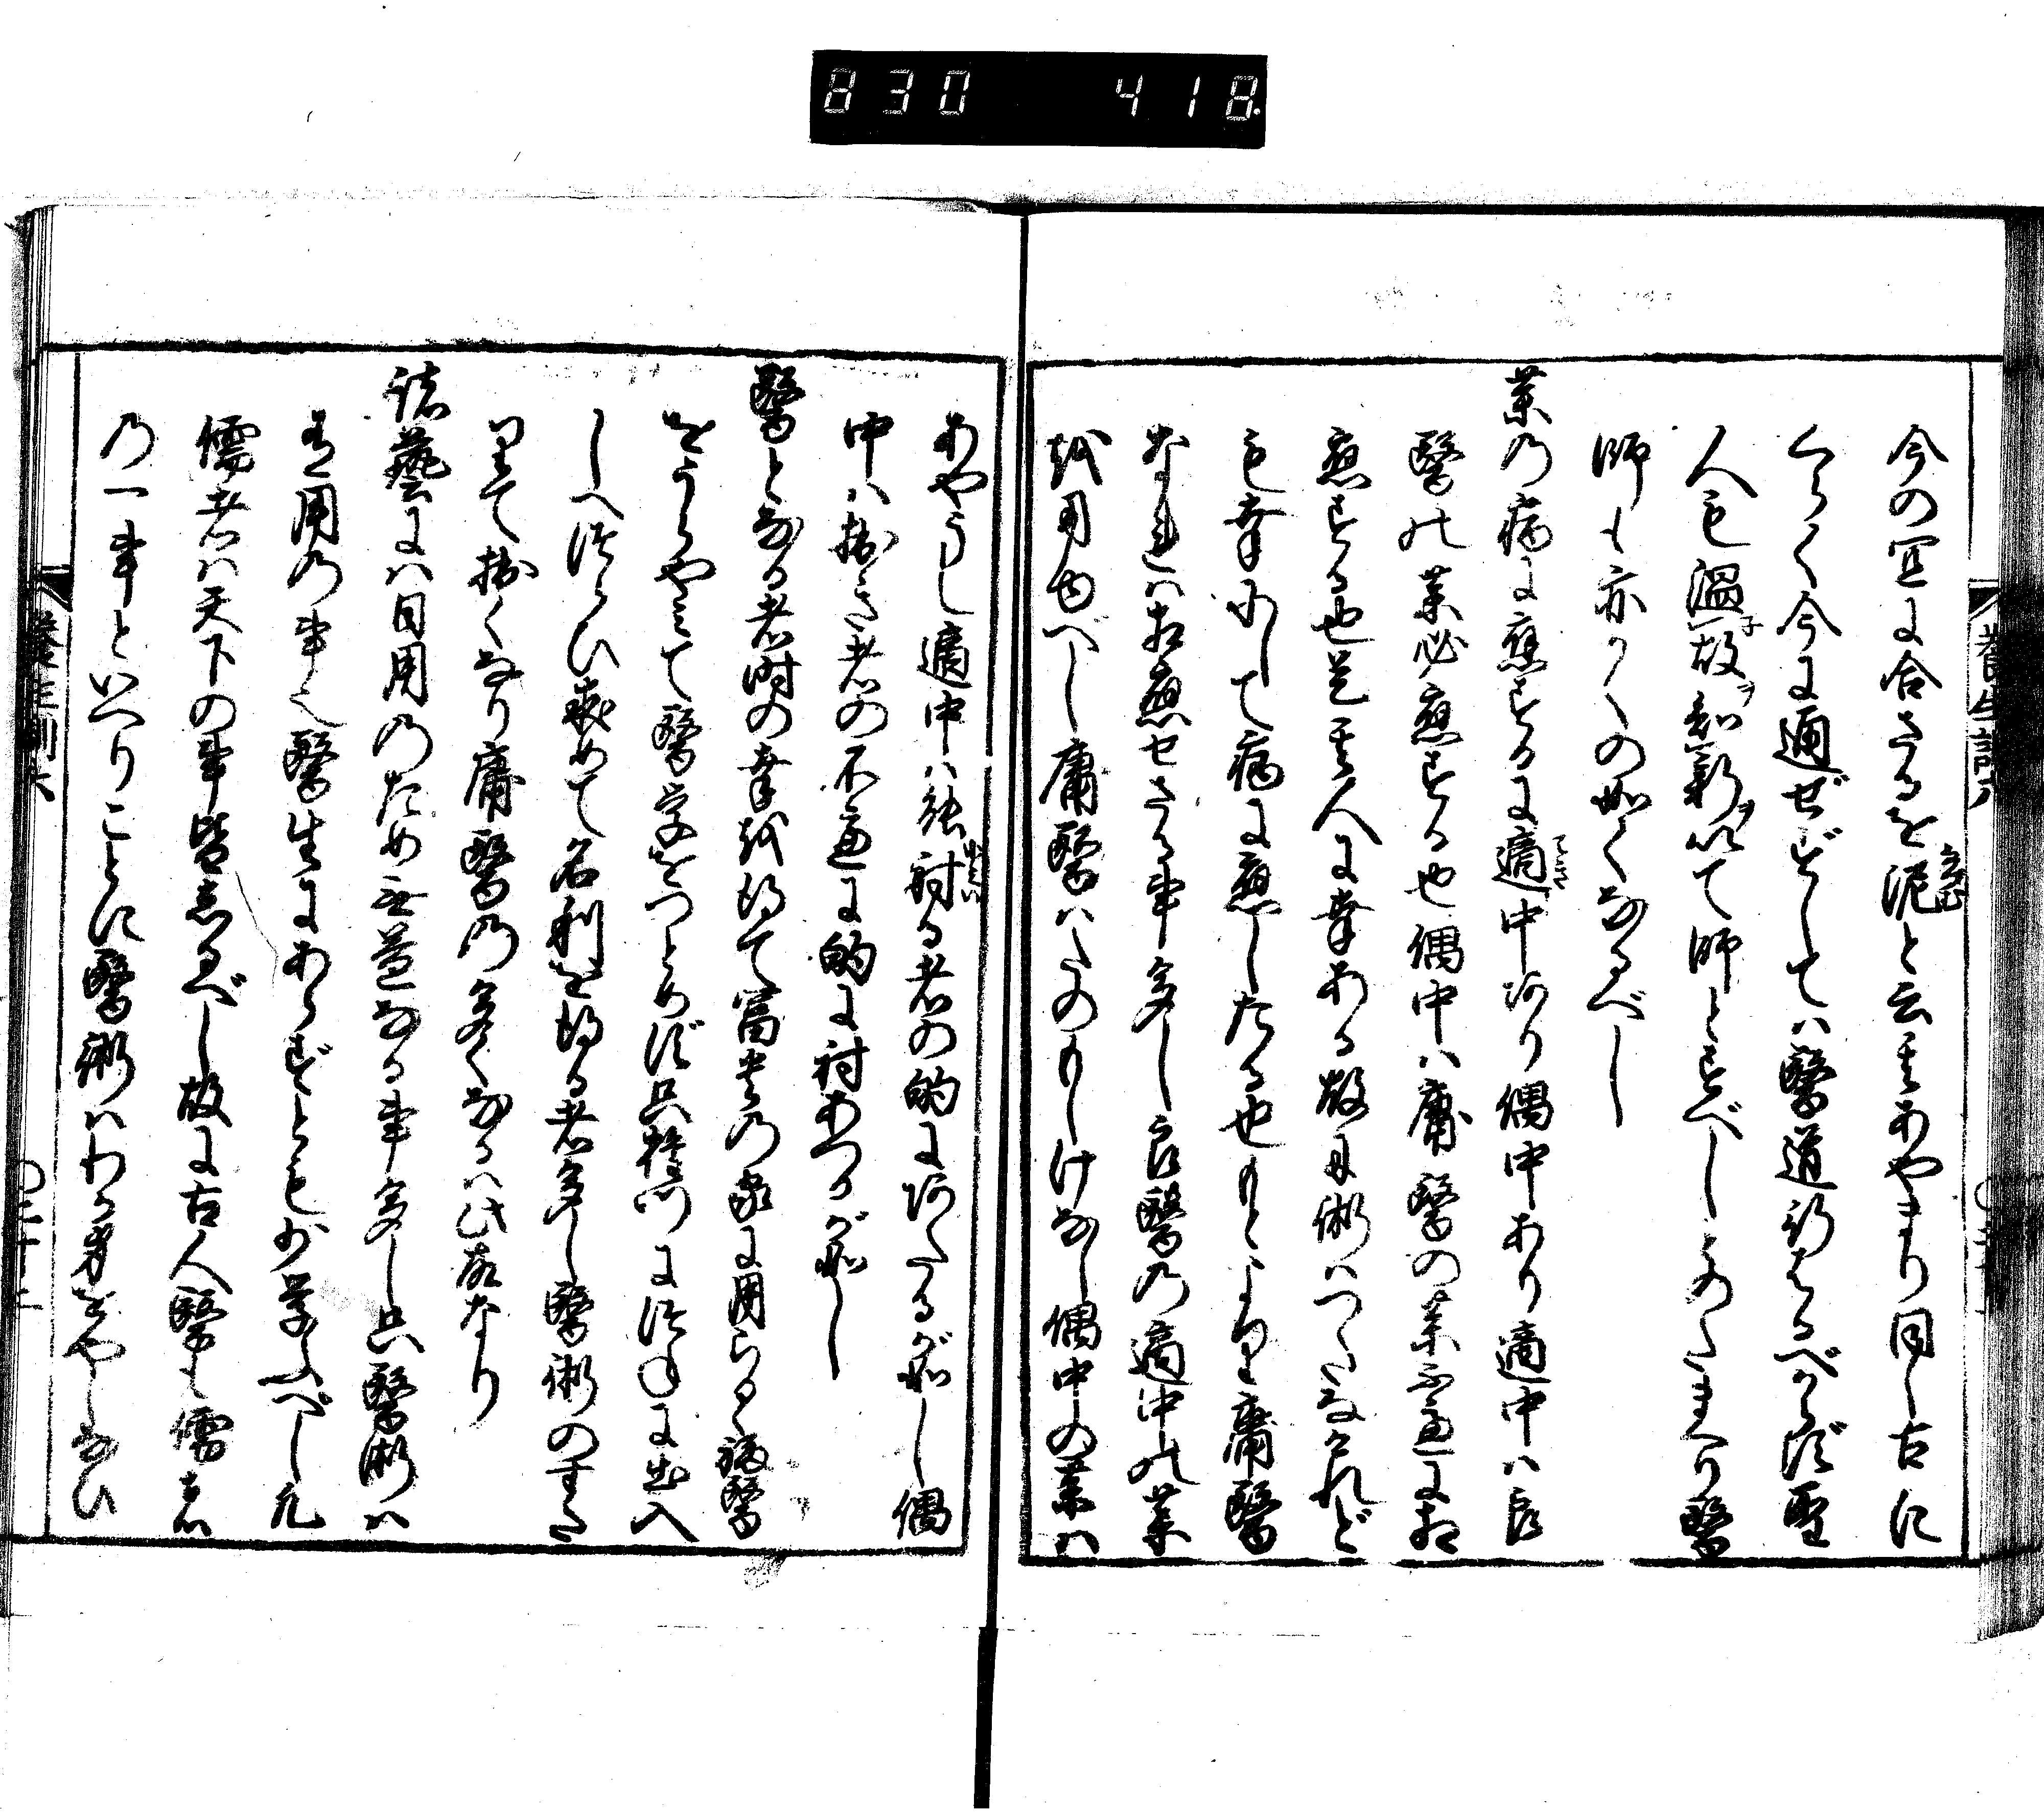 830 418
今の宜に合さるを泥と云其あやまり同し古に
くらく今に通ぜずしてハ醫道行ハるべからず聖
人も温故知新以て師とすべしとのたまへり醫
師も亦かくの如くなるべし
薬の病に應ずるに適中あり偶中あり適中ハ良
醫の薬必應ずる也偶中ハ庸醫の薬不慮に相
應ずる也是其人に幸ある故に術ハつたなけれど
も幸にして病に應したる也もとより庸醫
なれハ相應せさる事多し良醫の適中の薬
を用ゆべし庸醫ハたのもしけなし偶中の薬ハ
あやうし適中ハ能射る者の的にあたるが如し偶
中ハ拙き者の不慮に的に射あつるが如し
醫となる者時の幸を得て富貴の家に用らるゝ福醫
をうらやミて醫学をつとめず只権門に
しへつらひ求めて名利を得る者多し醫術のすた
りて拙くなり庸醫の多くなるハ此故なり
諸藝にハ日用のため無益なる事多し只醫術ハ
有用の事也醫生にあらずとも少学ふべし凡
儒者ハ天下の事皆しるべし故に古人醫も儒者
の一事といへりことに醫術ハわが身をやしなひ
養生訓六